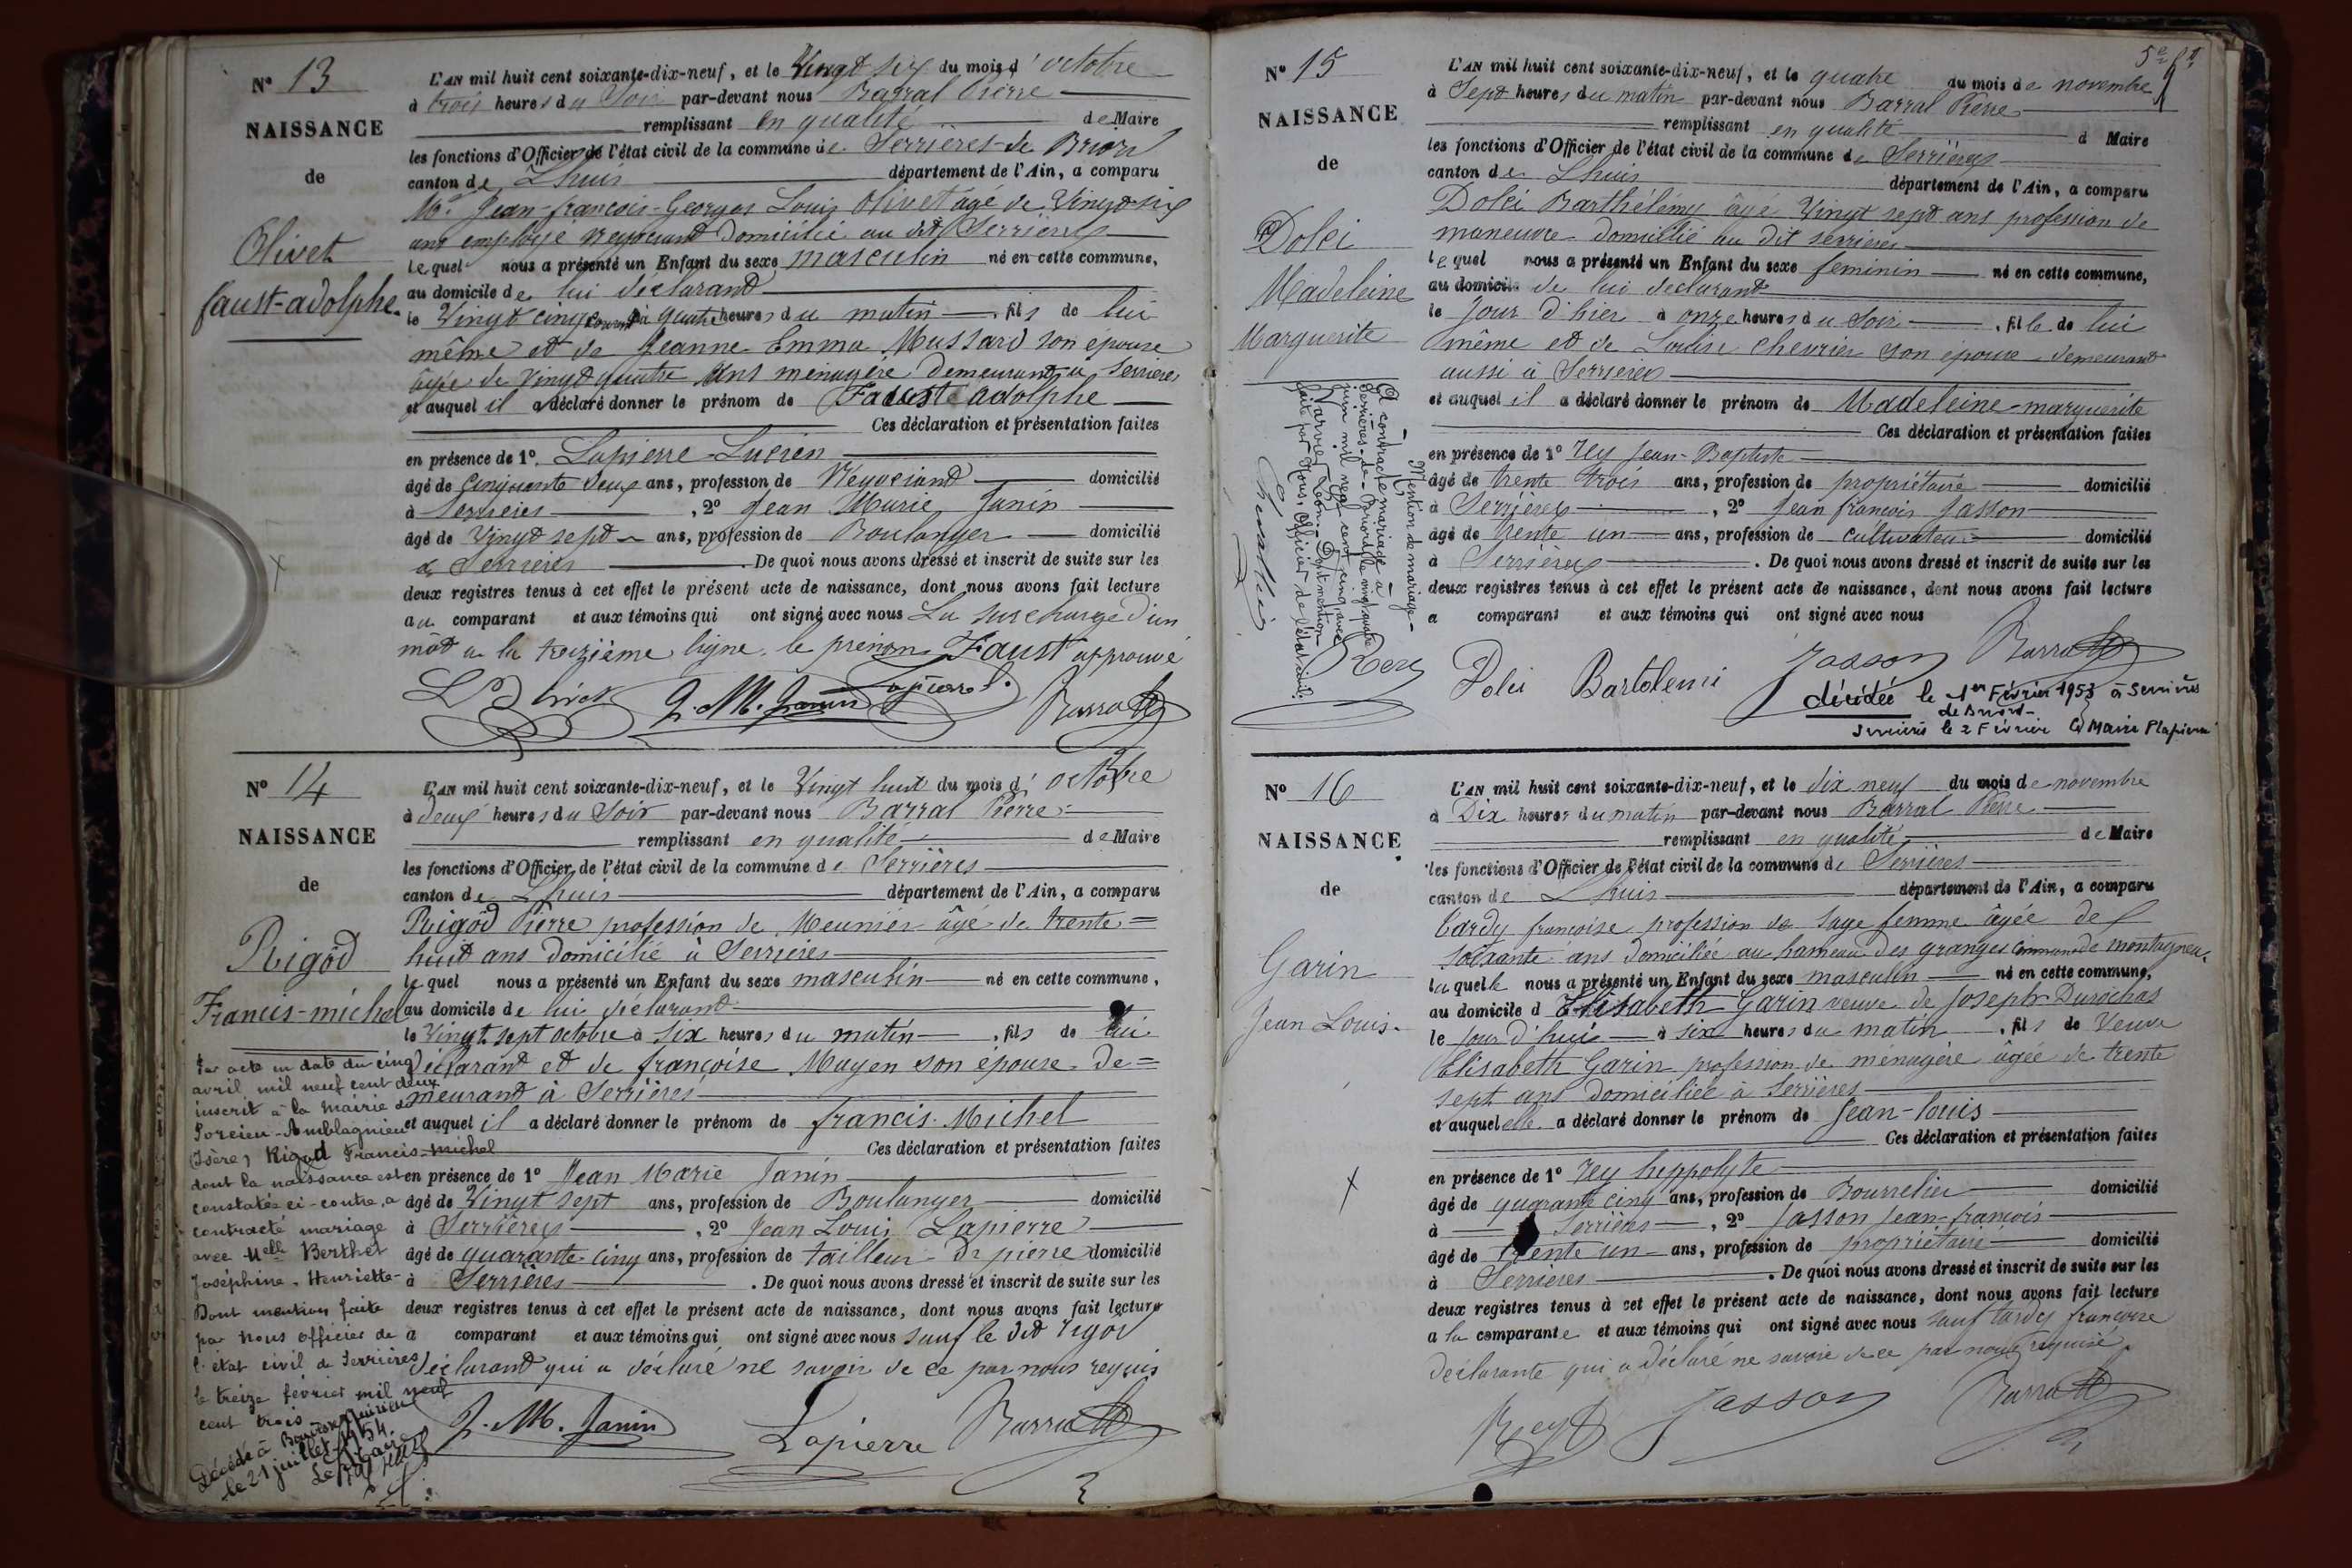 N° 13
NAISSANCE
de
Olivet
faust-adolphe.
L'AN mil huit cent soixante-dix-neuf, et le Vingt six du mois d'octobre
à trois heures du Soir par-devant nous Barral Pierre
remplissant en qualité de Maire
les fonctions d'Officier de l'état civil de la commune de Serrières-de Briord
canton de Lhuis département de l'Ain, a comparu
Mr Jean-françois-Georges Louis Olivet âgé de Vingt six
ans employé negociant Domicilié au dit Serrières
lequel nous a présenté un Enfant du sexe masculin né en cette commune,
au domicile de lui déclarant
le Vingt cinq courant à quatre heures du matin, fils de lui
même et de Jeanne Emma Mussard son épouse
âgée de Vingt quatre Ans menagère Demeurant à Serrières
et auquel il a déclaré donner le prénom de Faust adolphe
Ces déclaration et présentation faites
en présence de 1° Lapierre Lucien
âgé de Cinquante deux ans, profession de Negociant domicilié
à Serrières, 2° Jean Marie Janin
âgé de Vingt sept ans, profession de Boulanger domicilié
à Serrières. De quoi nous avons dressé et inscrit de suite sur les
deux registres tenus à cet effet le présent acte de naissance, dont nous avons fait lecture
au comparant et aux témoins qui ont signé avec nous La surcharge d'un
môt à la treizième ligne. le prénom Faust approuvé
L Olivet J. M. Janin Lapierre L. Barral
N° 14
NAISSANCE
de
Rigôd
Francis-michel
L'AN mil huit cent soixante-dix-neuf, et le Vingt huit du mois d'octobre
à deux heures du Soir par-devant nous Barral Pierre
remplissant en qualité de Maire
les fonctions d'Officier de l'état civil de la commune de Serrières
canton de Lhuis département de l'Ain, a comparu
Rigôd Pierre profession de Meunier âgé de trente=
huit ans domicilié à Serrières
lequel nous a présenté un Enfant du sexe masculin né en cette commune,
au domicile de lui déclarant
le Vingt sept octobre à six heures du matin, fils de lui
déclarant et de françoise Mayen son épouse de=
meurant à Serrières
et auquel il a déclaré donner le prénom de francis. Michel
Ces déclaration et présentation faites
en présence de 1° Jean Marie Janin
âgé de Vingt sept ans, profession de Boulanger domicilié
à Serrières, 2° Jean Louis Lapierre
âgé de quarante-cinq ans, profession de tailleur de pierre domicilié
à Serrières. De quoi nous avons dressé et inscrit de suite sur les
deux registres tenus à cet effet le présent acte de naissance, dont nous avons fait lecture
a comparant et aux témoins qui ont signé avec nous sauf le dit rigod
déclarant qui a déclaré ne savoir de ce par nous requis
J. M. Janin Lapierre Barral
Par acte en date du cinq
avril mil neuf cent deux
inscrit à la mairie de
Porcieu-Amblagnieu
(Isère) Rigod Francis-michel
dont la naissance est
constatée ci-contre, a
contracté mariage
avec Melle Berthet
Joséphine, Henriette-
Dont mention faite
par nous officier de
l'état civil de Serrières
le treize février mil neuf
cent trois.
Décédé à
le 21 juillet 1954.
Le Maire
N° 15
NAISSANCE
de
Dolei
Madeleine
Marguerite
5e ft
L'AN mil huit cent soixante-dix-neuf, et le quatre du mois de novembre
à Sept heures du matin par-devant nous Barral Pierre
remplissant en qualité d Maire
les fonctions d'Officier de l'état civil de la commune de Serrières
canton de Lhuis département de l'Ain, a comparu
Dolei Barthélémy âgé Vingt sept ans profession de
maneuvre domicilié au dit serrières
lequel nous a présenté un Enfant du sexe feminin né en cette commune,
au domicile de lui declarant
le Jour d'hier à onze heures du Soir, fille de lui
même et de Louise Chevrier son épouse demeurant
aussi à Serrières
et auquel il a déclaré donner le prénom de Madeleine-marguerite
Ces déclaration et présentation faites
en présence de 1° rey Jean-Baptiste
âgé de trente trois ans, profession de propriétaire domicilié
à Serrières, 2° Jean françois Jasson
âgé de trente un ans, profession de cultivateur domicilié
à Serrières. De quoi nous avons dressé et inscrit de suite sur les
deux registres tenus à cet effet le présent acte de naissance, dont nous avons fait lecture
a comparant et aux témoins qui ont signé avec nous
Rey Dolei Bartolemi Jasson Barral
décédée le 1er Février 1953 à Serrières
de Briord-
Serrières le 2 Février Le Maire Plapierre
Mention de mariage-
A contracté mariage à
Serrières-de-Briord le vingt quatre
juin mil neuf cent cinq avec
Dont mention
faite par Nous, Officier de l'état civil.
N° 16
NAISSANCE
de
Garin
Jean Louis.
L'AN mil huit cent soixante-dix-neuf, et le dix neuf du mois de novembre
à Dix heures du matin par-devant nous Barral Pierre
remplissant en qualité de Maire
les fonctions d'Officier de l'état civil de la commune de Serrières
canton de Lhuis département de l'Ain, a comparu
tardy françoise profession de sage femme âgée de
soixante ans Domiciliée au hameau des granges commune de montagneu.
laquelle nous a présenté un Enfant du sexe masculin né en cette commune,
au domicile d Elisabeth Garin veuve de Joseph Durochas
le Jour d'hui à six heures du matin, fils de Veuve
Elisabeth Garin profession de ménagère âgée de trente
sept ans domiciliée à Serrières
et auquel elle a déclaré donner le prénom de Jean-louis
Ces déclaration et présentation faites
en présence de 1° rey hyppolyte
âgé de quarante cinq ans, profession de Bourrelier domicilié
à Serrières, 2° Jasson Jean-francois
âgé de trente un ans, profession de propriétaire domicilié
à Serrières. De quoi nous avons dressé et inscrit de suite sur les
deux registres tenus à cet effet le présent acte de naissance, dont nous avons fait lecture
a la comparante et aux témoins qui ont signé avec nous sauf tardy françoise
declarante qui a déclaré ne savoir de ce par nous requise
Rey Jasson Barral